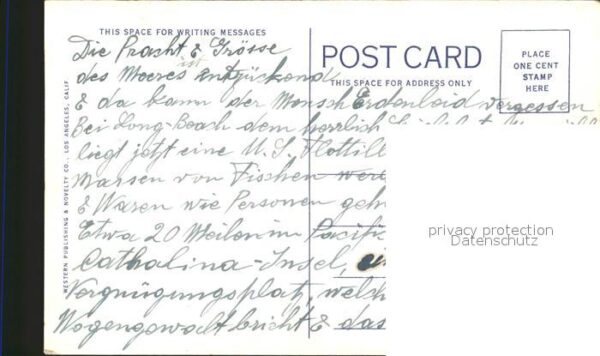 THIS SPACE FOR WRITING MESSAGES
POST CARD
THIS SPACE FOR ADDRESS ONLY
PLACE
ONE CENT
STAMP
HERE
WESTERN PUBLISHING & NOVELTY CO., LOS ANGELES, CALIF.
Die Pracht & Grösse
des Meeres ist entzückend
& da kann der Mensch Erdenleid vergessen
Bei Long-Beach dem herrlich
liegt jetzt eine U.S. Flottill
Massen von Fischen were
& Waren wie Personen geh
Etwa 20 Meilen im Pacific
Cathalina-Insel,
Vergnügungsplatz, welch
Wogengewalt bricht & das
privacy protection
Datenschutz